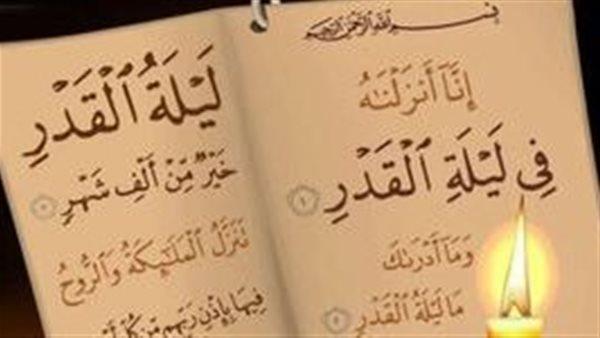 بِسْمِ اللَّهِ الرَّحْمَنِ الرَّحِيمِ
إِنَّآ أَنزَلْنَٰهُ
فِي لَيْلَةِ ٱلْقَدْرِ ١
وَمَآ أَدْرَىٰكَ
مَا لَيْلَةُ ٱلْقَدْرِ ٢
لَيْلَةُ ٱلْقَدْرِ
خَيْرٌ مِّنْ أَلْفِ شَهْرٍ ٣
تَنَزَّلُ ٱلْمَلَٰٓئِكَةُ وَٱلرُّوحُ
فِيهَا بِإِذْنِ رَبِّهِم مِّن كُلِّ